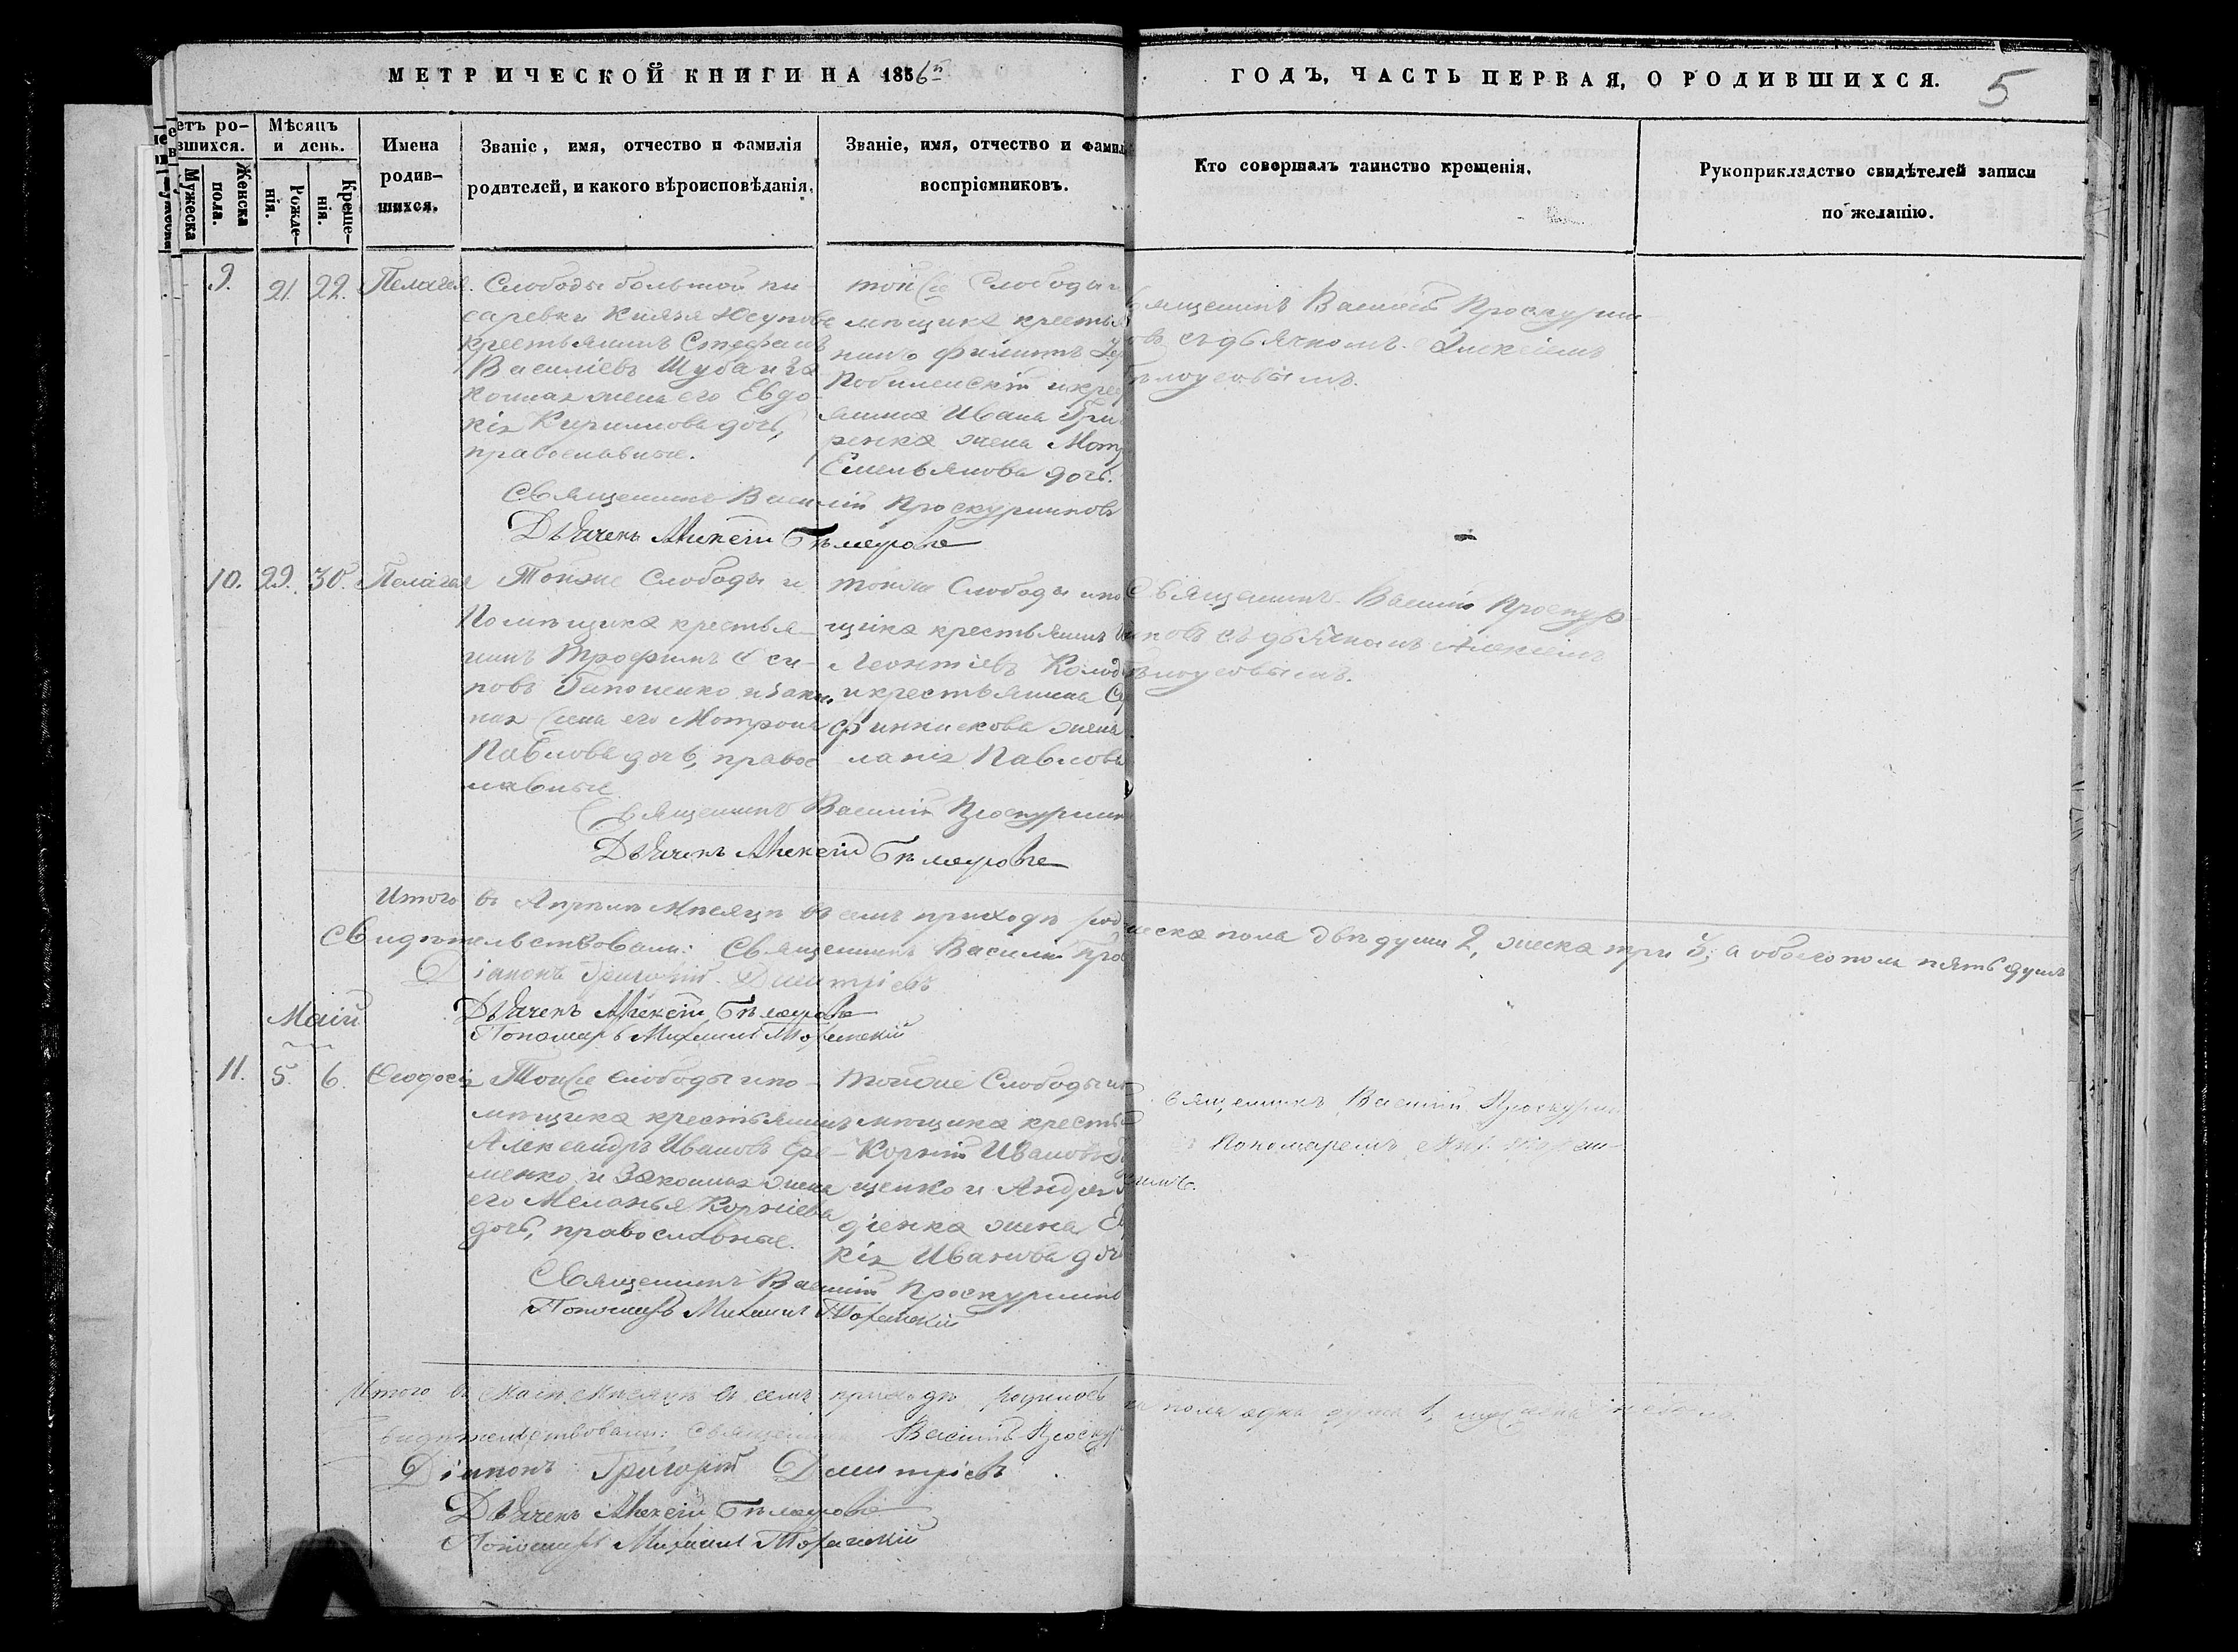 МЕТРИЧЕСКОЙ КНИГИ НА 1856й
ГОДЪ, ЧАСТЬ ПЕРВАЯ, О РОДИВШИХСЯ.
5
етъ ро-
вшихся.
Мужеска
Женска
пола.
Мѣсяцъ
и день.
Рожде-
нія.
Креще-
нія.
Имена
родив-
шихся.
Званіе, имя, отчество и фамилія
родителей, и какого вѣроисповѣданія.
Званіе, имя, отчество и фамил
воспріемниковъ.
Кто совершалъ таинство крещенія.
Рукоприкладство свидѣтелей записи
по желанію.
9.
21.
22.
Пелагея.
Слободы большой пи-
саревки Князя Юсупова
крестьянинъ Стефанъ
Василіевъ
жена его Евдо
кія Кирилова дочь,
православные.
тойже Слободы
мѣщика крестья
нинъ Филиппъ
янина Ивана
ренка жена Мотр
Емельянова дочь.
Священникъ Василій Проскурни
овъ съ дьячкомъ Алексіемъ
ѣлоусовымъ.
Священникъ Василій Проскурниковъ
Дьячекъ Алексѣй Бѣлоусовъ
10.
29.
30.
Пелагея
Тойже Слободы и
Помѣщика крестья-
нинъ Трофимъ Оси-
повъ Гапоненко и закон.
ная жена его Мотрона
Павлова дочь, правос
лавные
тойже Слободы ипо
щика крестьянинъ
Леонтіевъ Колод
икрестьянина
жена
ланія Павлова
Священникъ Василій Проскур
иковъ съ дьячкомъ Алексіемъ
ѣлоусовымъ.
Священникъ Василій Проскурник
Дьячекъ Алексѣй Бѣлоусовъ
Итого въ Апрѣлѣ Мѣсяцѣ въ семъ приходѣ род
еска пола двѣ души 2, женска три 3; а обоего пола пять душъ
Свидѣтельствовали: Священникъ Василій Про
Діаконъ Григорій Дмитріевъ
Дьячекъ Алексѣй Бѣлоусовъ
Пономарь Михаилъ
Маій
11.
5.
6.
Ѳеодосія
Тойже слободы ипо-
мѣщика крестьянинъ
Александръ Ивановъ Ере-
менко и Законная жена
его Меланья Корніева
дочь, православные.
тойже Слободы ип
мѣщика крестья
Корній Ивановъ
щенко и Андрея
діенка жена Ев
кія Иванова доч
вященникъ Василій Проскурни
Пономаремъ Мих.
Священникъ Василій Проскурник
Пономарь Михаилъ
Итого въ Маіи Мѣсяцѣ въ семъ приходѣ родилось
а пола одна душа 1,
видѣтельствовали: Священникъ Василій Проскур
Діаконъ Григорій Дмитріевъ
Дьячекъ Алексѣй Бѣлоусовъ
Пономарь Михаилъ